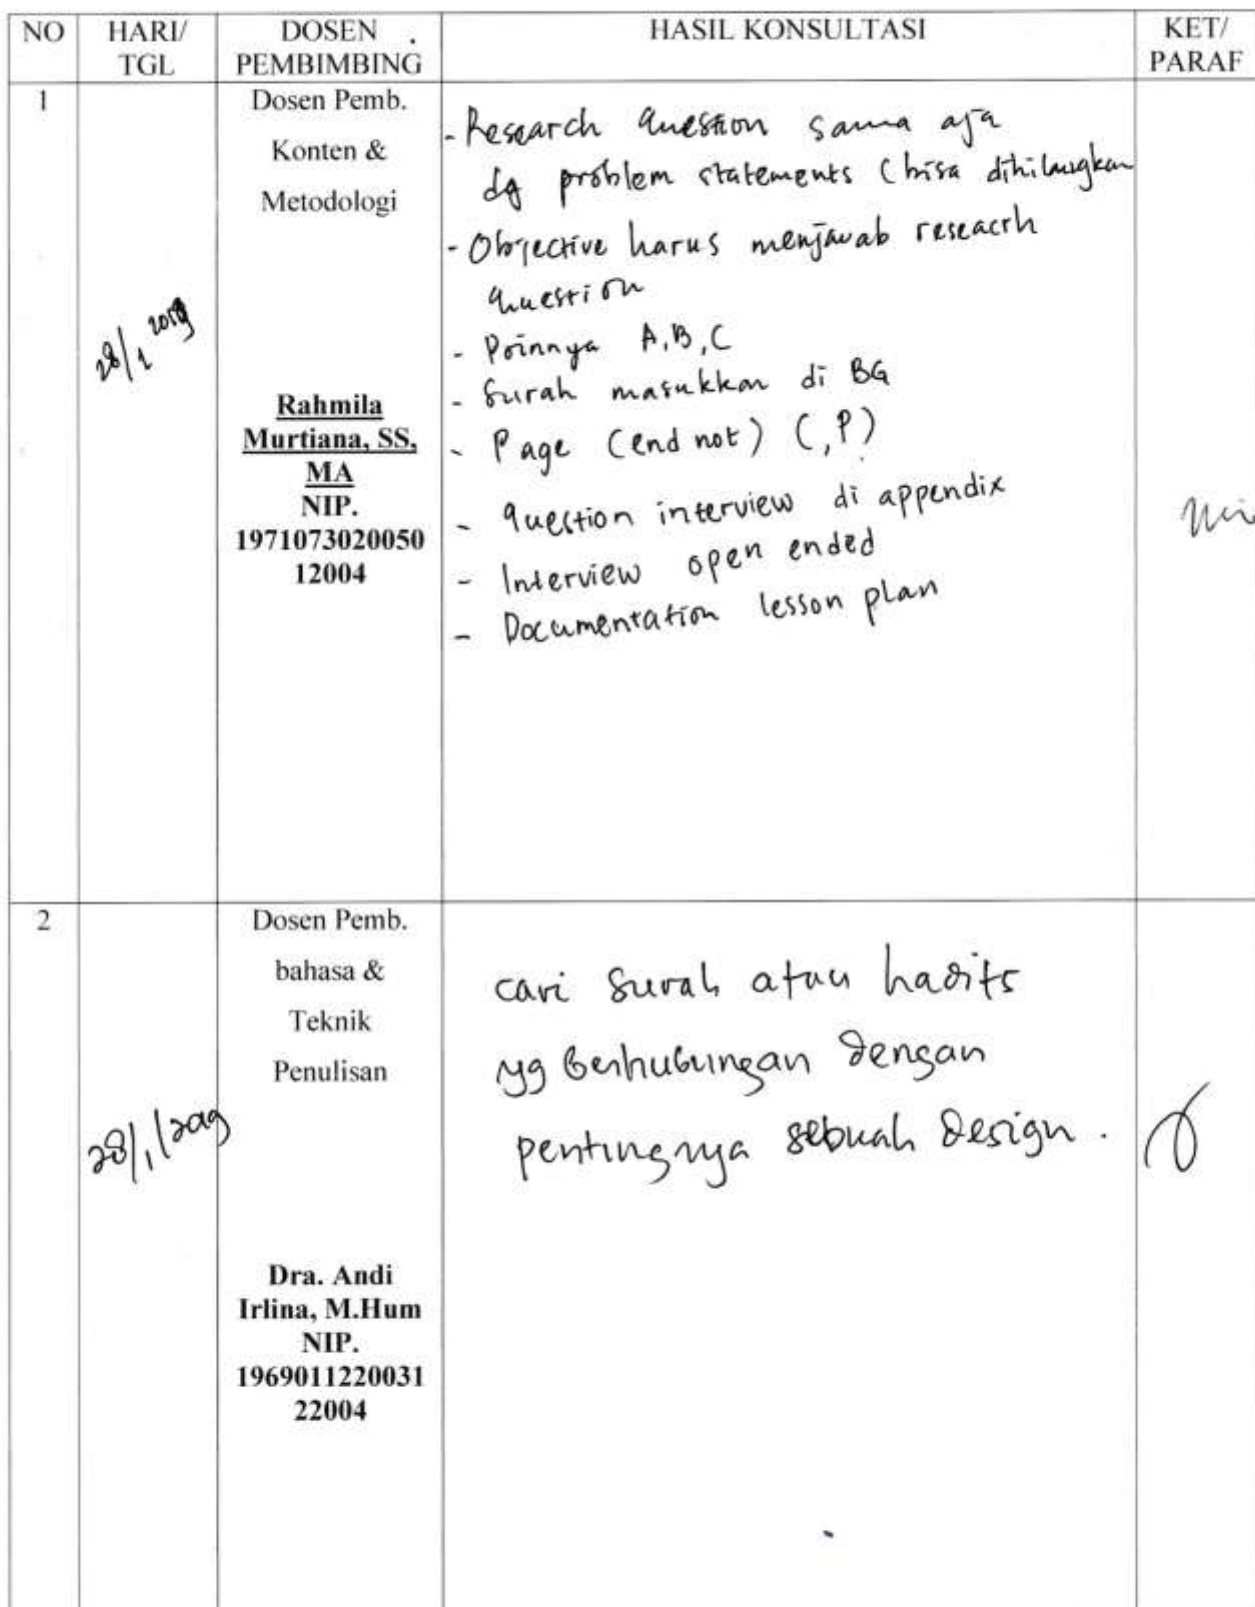 NO HARI/ DOSEN HASIL KONSULTASI KET/
TGL PEMBIMBING PARAF
1
Dosen Pemb.
Konten &
Metodologi
28/1 2019
Rahmila
Murtiana, SS,
MA
NIP.
1971073020050
12004
- Research Question sama aja
dg problem statements (bisa dihilangkan
- Objective harus menjawab reseacrh
Question
- Poinnya A, B, C
- Surah masukkan di BG
- Page (end not) (, P)
- Question interview di appendix
- Interview open ended
- Documentation lesson plan
2
Dosen Pemb.
bahasa &
Teknik
Penulisan
28/1/2019
Dra. Andi
Irlina, M.Hum
NIP.
1969011220031
22004
cari surah atau hadits
yg berhubungan dengan
pentingnya sebuah design.